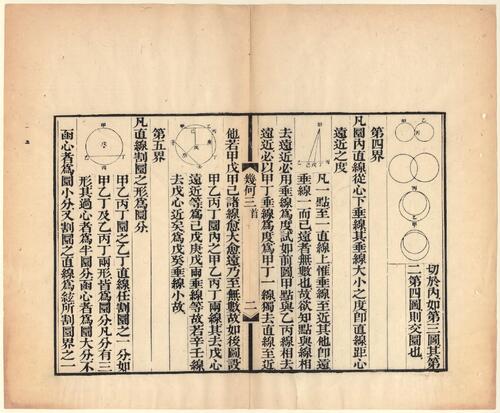 切於內如第三圖其第
二第四圖則交圜也
第四界
凡圜內直線從心下垂線其垂線大小之度即直線距心
遠近之度
凡一點至一直線上惟垂線至近其他即遠
垂線一而已遠者無數也故欲知點與線相
去遠近必用垂線為度試如前圖甲點與乙丙線相去
遠近必以甲丁垂線為度為甲丁一線獨去直線至近
幾何三首 二
他若甲戊甲己諸線愈大愈遠乃至無數故如後圖設
甲乙丙丁圜內之甲乙丙丁兩線其去戊心
遠近等為己戊庚戊兩垂線等故若辛壬線
去戊心近矣為戊癸垂線小故
第五界
凡直線割圜之形為圜分
甲乙丙丁圜之乙丁直線任割圜之一分如
甲乙丁及乙丙丁兩形皆為圜分凡分有三
形其過心者為半圜分函心者為圜大分不
函心者為圜小分又割圜之直線為絃所割圜界之一